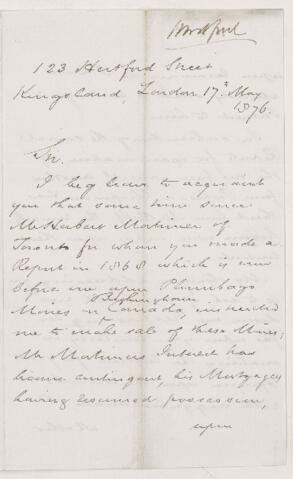 123 Hertford Street
Kingsland, London 17th May
1876.
Sir.
I beg leave to acquaint
you that some time since
Mr Herbert Mortimer of
Toronto for whom you made a
Report in 1868 which is now
before me upon Plumbago
Mines in Canada, instructed
me to make sale of these Mines;
Mr Mortimers Interest has
become contingent, his Mortgagees
having resumed possession,
upon